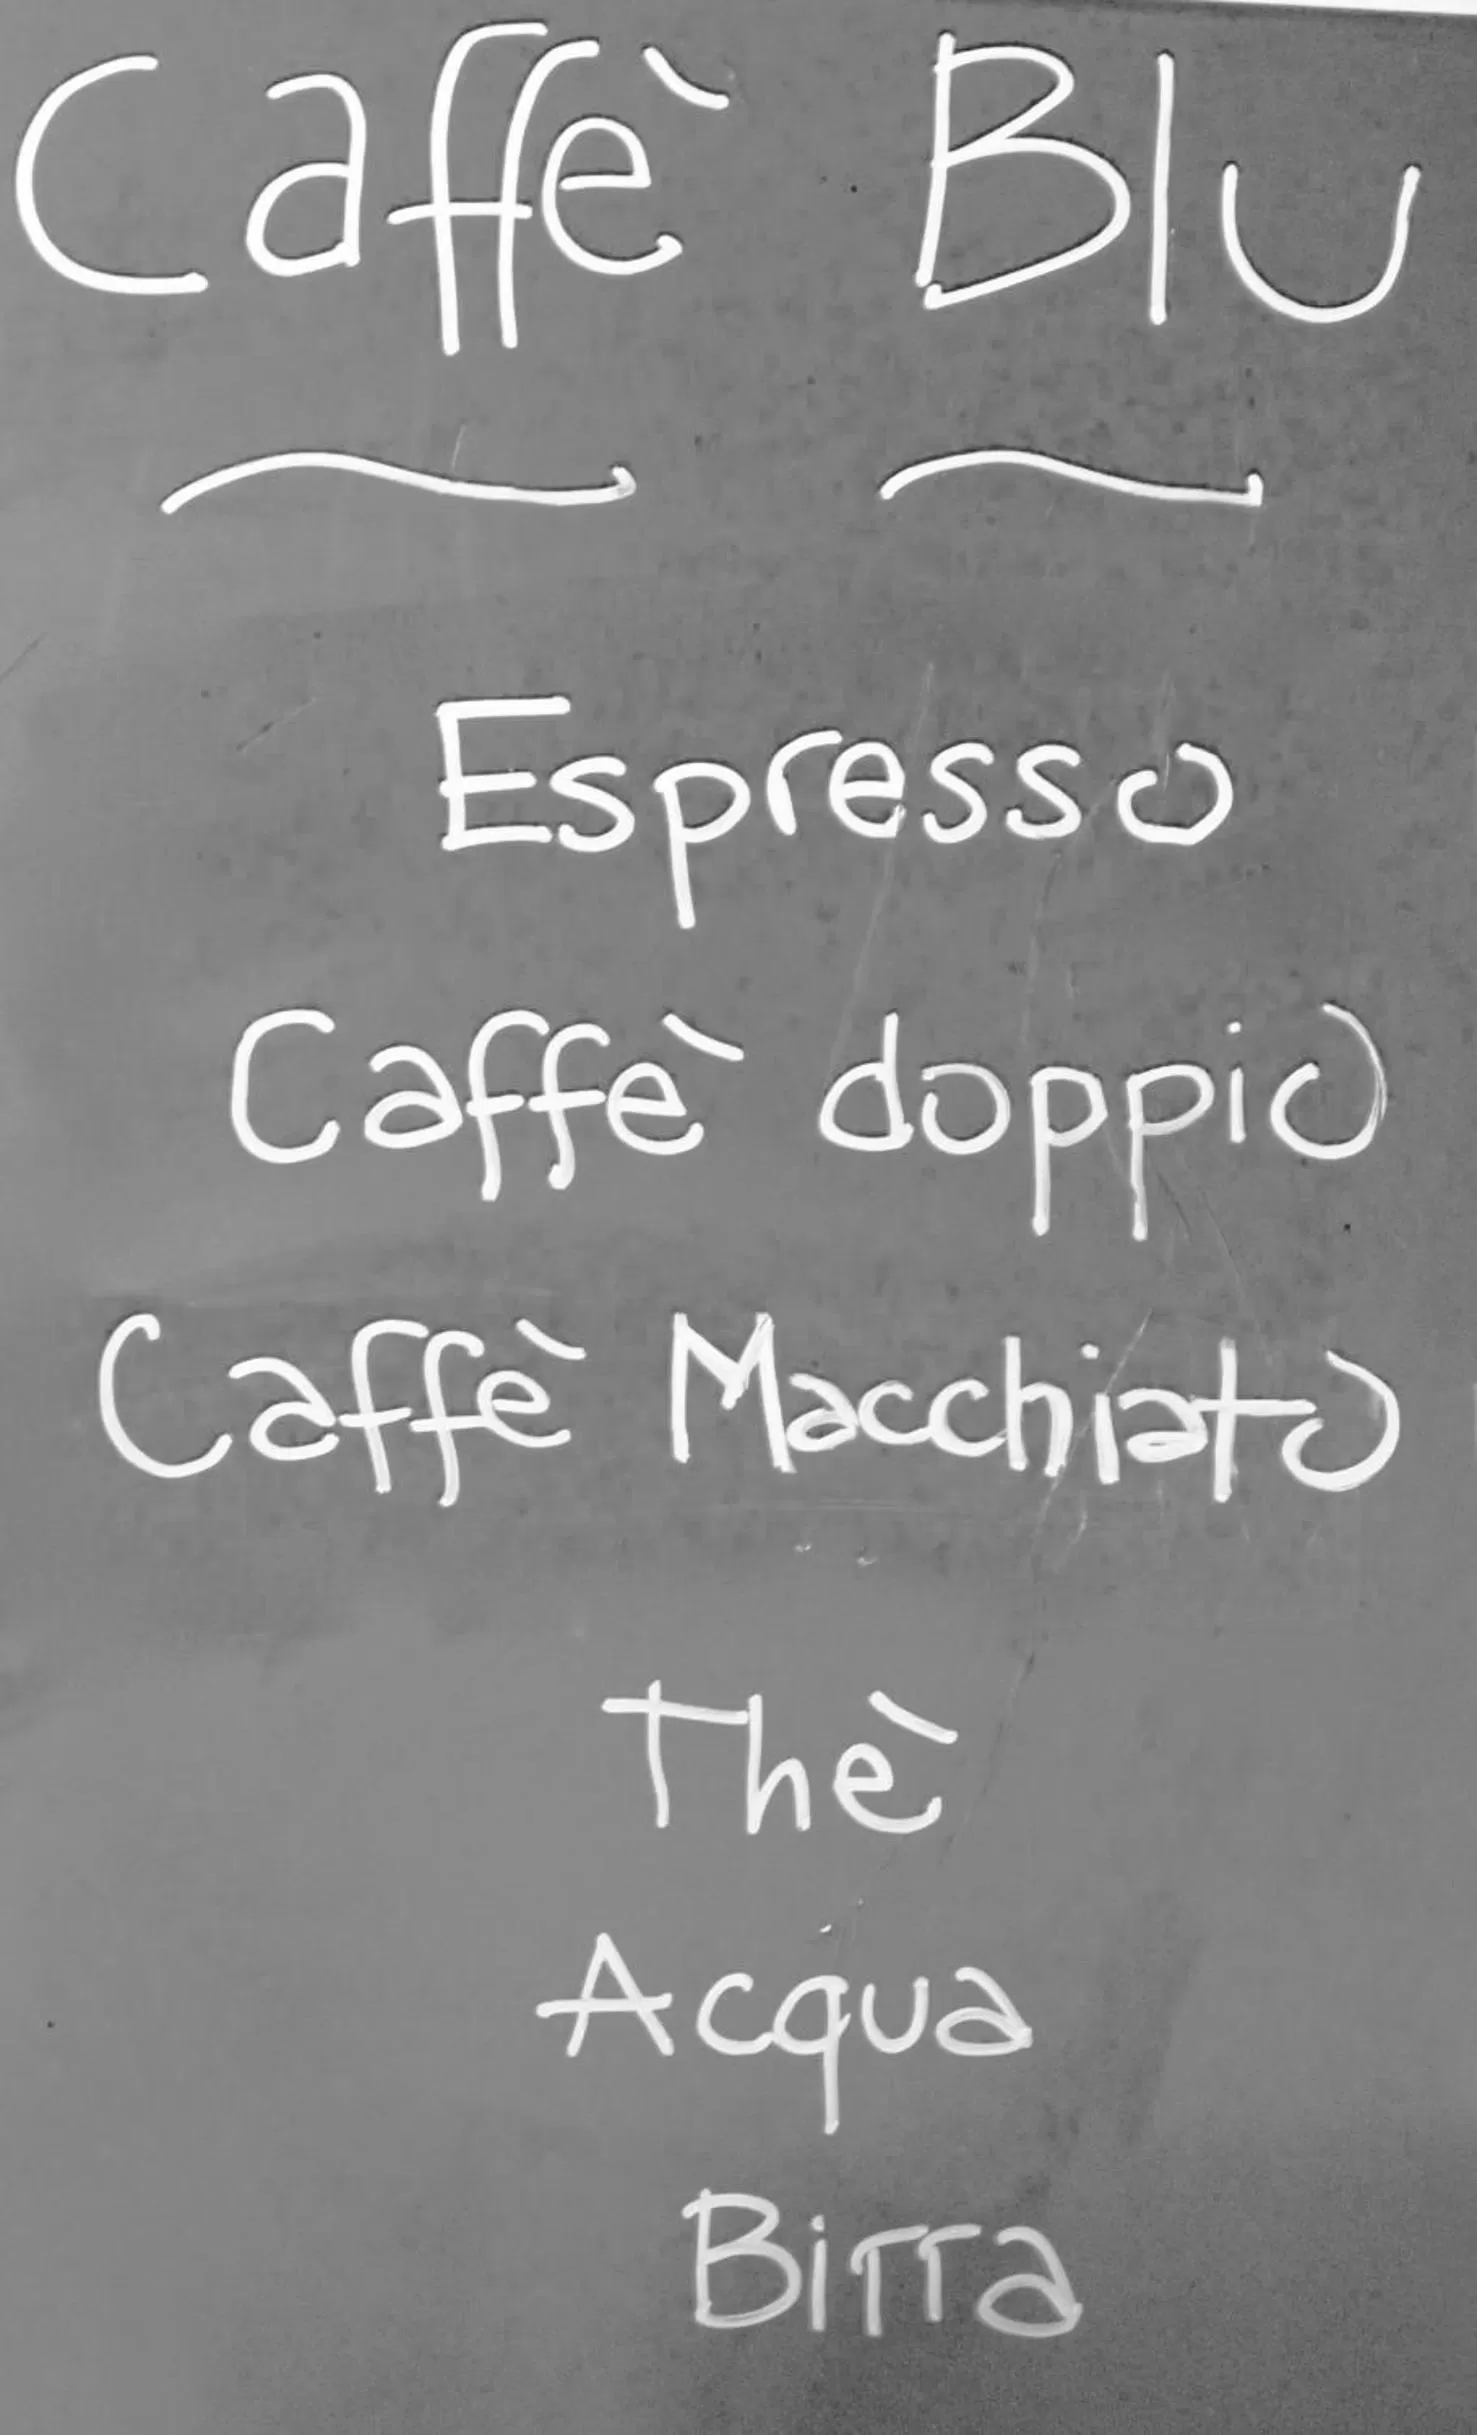 Caffè Blu
Espresso
Caffè doppio
Caffè Macchiato
Thè
Acqua
Birra